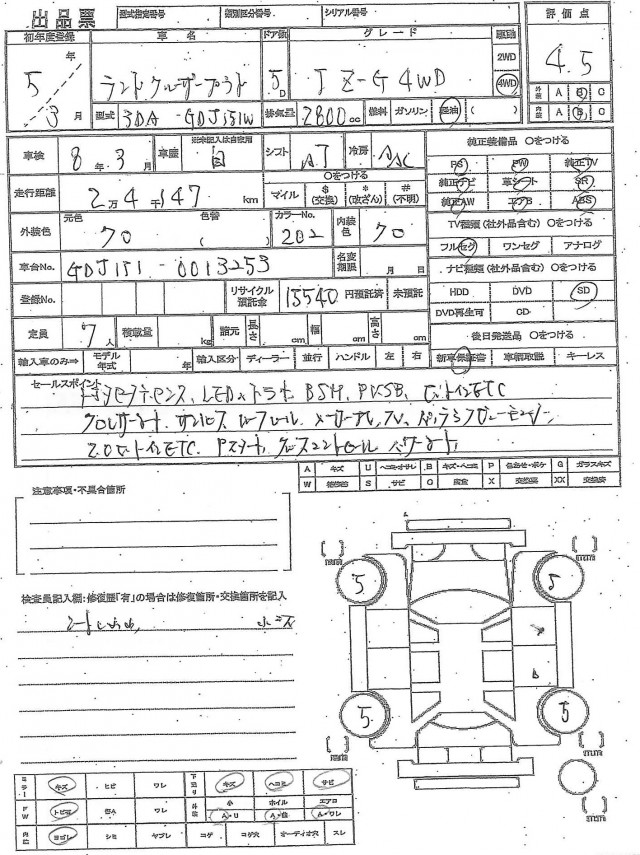 出品票 型式指定番号 類別区分番号 シリアル番号 評価点
初年度登録 車名 ドア数 グレード 駆動
5年 ランドクルーザープラド 5D TZ-G 4WD 2WD 4.5
4WD
3月 型式 3DA-GDJ151W 排気量 2800cc 燃料 ガソリン 軽油 ( )
外装 A B C
内装 A B C
車検 8年3月 車歴 ※未記入は自家用 自 シフト AT 冷房 AAC 純正装備品 ○をつける
PS PW 純正TV
純正ナビ 革シート SR
純正AW エアB ABS
走行距離 2万4千147km ○をつける
マイル $(交換) *(改ざん) #(不明)
外装色 元色 70 色替 ( ) カラーNo. 202 内装色 70
TV種類(社外品含む) ○をつける
フルセグ ワンセグ アナログ
車台No. GDJ151-0013253 名変期限 月 日
ナビ種類(社外品含む) ○をつける
HDD DVD SD
DVD再生可 CD
登録No. リサイクル預託金 15540 円預託済 未預託
定員 7人 積載量 kg 諸元 長さ cm 幅 cm 高さ cm
後日発送品 ○をつける
新車保証書 車輌取説 キーレス
輸入車のみ⇒ モデル年式 年 輸入区分 ディーラー 並行 ハンドル 左 右
セールスポイント
BSM、PKSB、ビルトインETC
クロレザーシート、サンルーフ、ルーフレール
2.0ビルトインETC、Pスタート、クルーズコントロール パワーシート
A キズ U ヘコミ・オサレ B キズ・ヘコミ P 色あせ・ボケ G ガラスキズ
W 補修跡 S サビ C 腐食 X 交換要 XX 交換済
注意事項・不具合箇所
検査員記入欄:修復歴「有」の場合は修復箇所・交換箇所を記入
[ ]mm [ ]mm
5 5
5 5
[ ]mm [ ]mm
[ ]mm
ミラー キズ ヒビ ワレ 下廻り キズ ヘコミ サビ
FW トビ石 ワレ 外装 小 ホイル エアロ
A・U A・ワレ
内装 ヨゴレ シミ ヤブレ コゲ コゲ穴 オーディオ穴 スレ